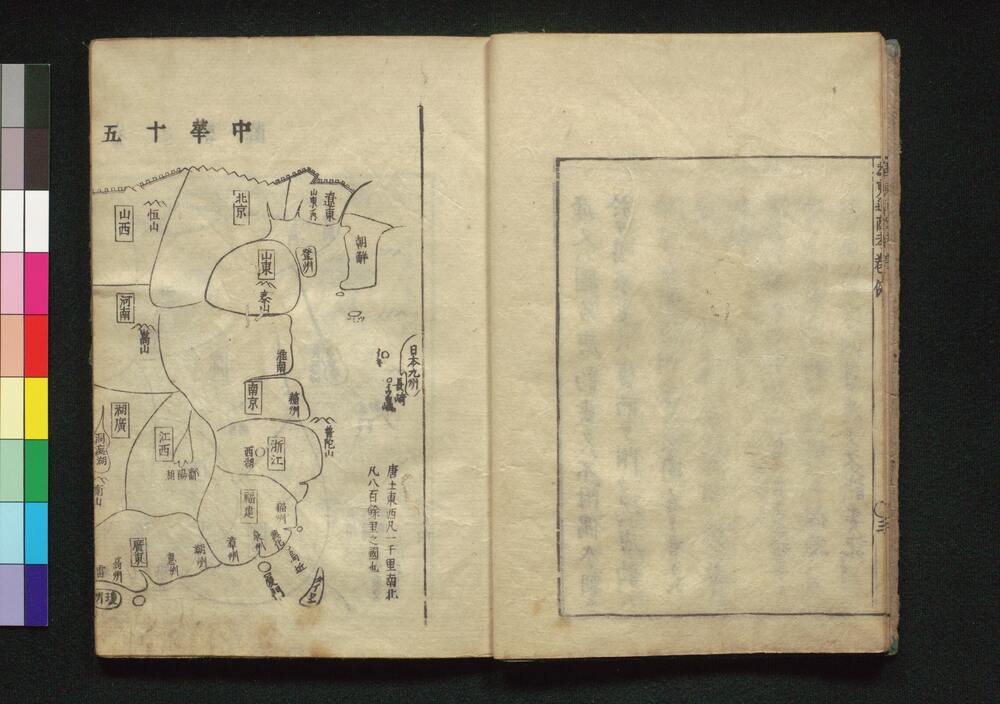 中華十五
北京
遼東
山東ノ内
朝鮮
恒山
山西
山東
泰山
登州
河南
嵩山
日本九州
長崎
淮南
南京
普陀山
湖廣
洞庭湖
江西
浙江
西湖
唐土東西凡一千里南北
凡八百餘里之國也
福建
福州
興化
泉州
漳州
厦門
廣東
潮州
惠州
高州
雷
瓊州